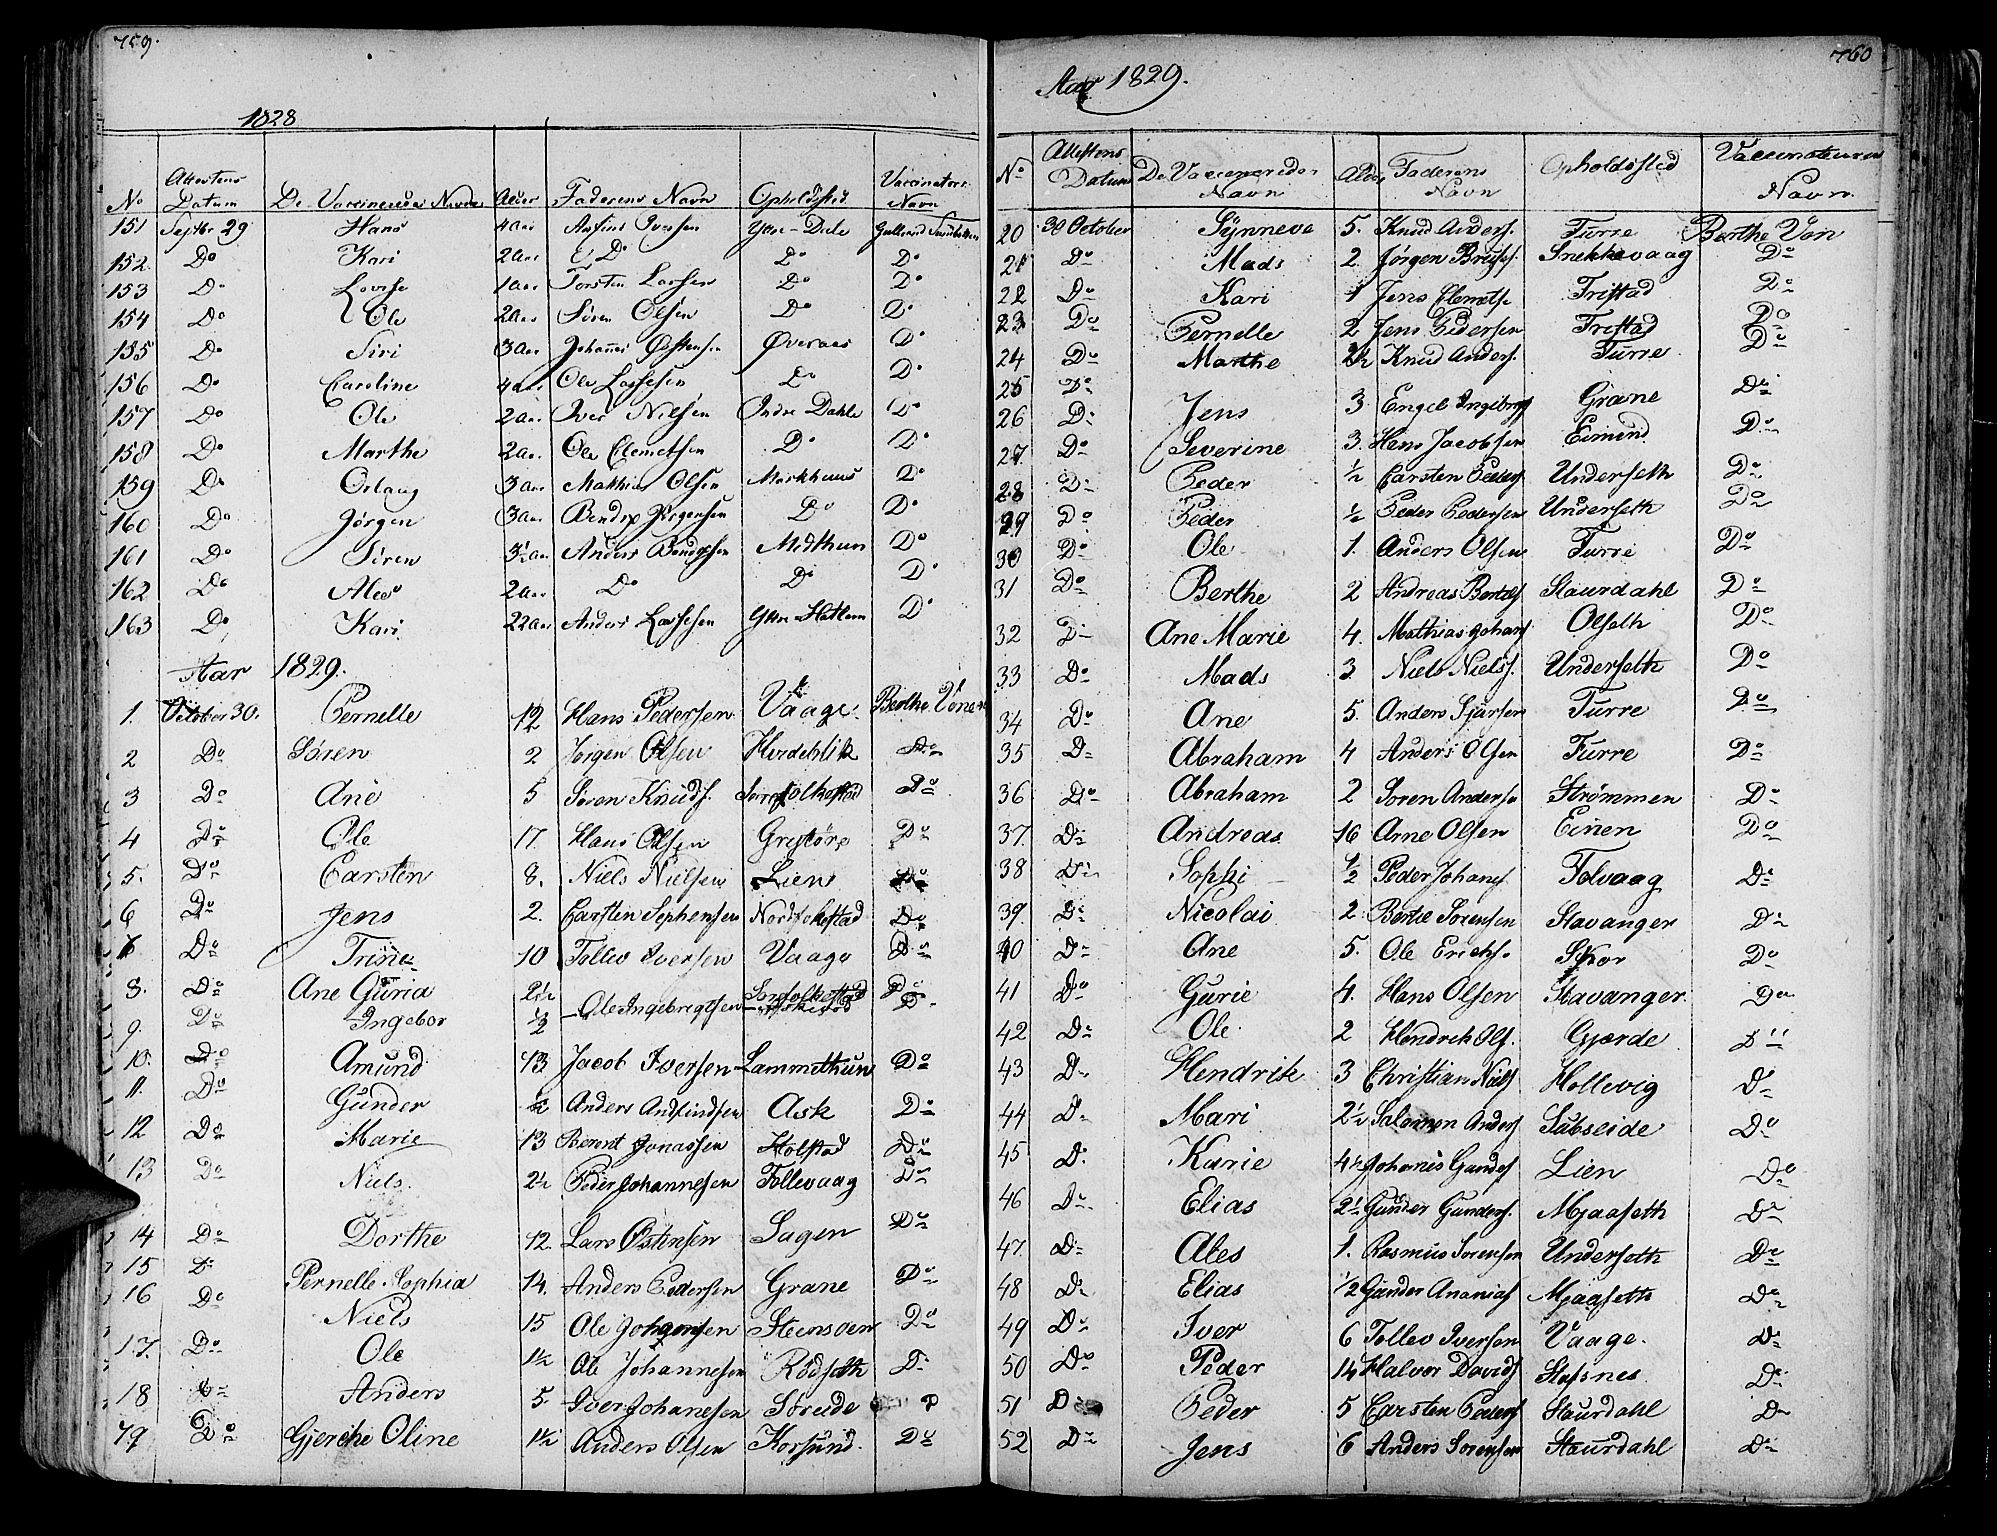 759.
1828
No Attestens Datum De Vaccineredes Navne Alder Faderens Navn Opholdsted Vaccinators Navn
151 Septbr 29 Hans 4 aar Iversen Ytre-Dale
152. Do Kari 2 aar Do Do Do
153 Do Lovise 1 aar Torsten Larsen Do Do
154 Do Ole 2 aar Sören Olsen Do Do
155 Do Siri 3 aar Johannes Østensen Øveraas Do
156 Do Caroline 4 aar Ole Lassesen Do Do
157 Do Ole 2 aar Iver Nielsen Indre Dahle Do
158 Do Marthe 2 aar Ole Clemetsen Do Do
159 Do Oslaug 3 aar Mathias Olsen Markhuus Do
160 Do Jørgen 3 aar Bendix Jørgensen Do Do
161 Do Sören 3½ aar Anders Bendixsen Midthun Do
162 Do Alees 2 aar Do Do Do
163 Do Kari 22 aar Anders Lassesen Ytre Hatlem Do
Aar 1829.
1. October 30. Pernelle 12 Hans Pedersen Vaage. Berthe
2 Do Søren 2 Jörgen Olsen Herdeblik Do
3 Do Ane 5 Søren Knuds. Do
4 Do Ole 17. Hans Olsen Do
5. Do Carsten 8. Niels Nielsen Lien Do
6 Do Jens 2. Carsten Sephensen Do
Do Trine 10 Tollev Iversen Vaage Do
8. Do Ane Guria 2½ Ole Ingebregtsen Do
9. Do Ingebor ½ Do
10. Do Amund 13 Jacob Iversen Lammethun Do
11. Do Gunder ½ Anders Andfindsen Ask Do
12 Do Marie 13 Berent Jonassen Holstad Do
13 Do Niels. 2½ Peder Johannesen Follevaag Do
14 Do Dorthe 12. Lars Østensen Sagen Do
15 Do Pernelle Sophia 14. Anders Pedersen Grane Do
16 Do Niels 15 Ole Steensoen Do
17. Do Ole 1½ Ole Johannesen Rödseth Do
18 Do Anders 5. Iver Johanesen D
19 Do Gjerche Oline 1½ Anders Olsen Korsund. Do
760
Aar 1829.
No Attestens Datum De Vaccineredes Navn Alder Faderens Navn Opholdsted Vaccinateurens Navn.
20 30 October Synneve 5. Knud Anders. Furre Berthe
21 Do Mads 2. Jørgen Snekkevaag Do
22 Do Kari 1 Jens Clemetse Tristad Do
23 Do Pernelle 2 Jens Pedersen Tristad Do
24 Do Marthe 2½ Knud Anders. Furre. Do
25 Do
26 Do Jens 3. Engel Grane Do
27 Do Severine 3. Hans Jacobsen Do
28 Do Peder ½ Carsten Peders Underseth Do
29 Do Peder ½ Peder Pedersen Underseth Do
30 Do Ole 1. Anders Olsen Furre Do
31 Do Berthe 2 Andreas Staurdahl Do
32 Do Ane Marie 4. Mathias Johans Olseth Do
33 Do Mads 3 Niels Niels. Underseth Do
34 Do Ane 5. Anders Furre Do
35 Do Abraham 4 Anders Olsen Furre Do
36 Do Abraham 2 Soren Anderse Strömmen Do
37. Do Andreas 16 Arne Olsen Einen Do
38 Do Sophi ½ Peder Johans Folvaag Do
39 Do Nicolai 2 Bertil Sorensen Stavanger Do
40 Do Ane 5. Ole Erichs. Skor Do
41 Do Gurie 4. Hans Olsen Stavanger Do
42 Do Ole. 2 Hendrik Ols. Gjærde Do
43 Do Hendrik 3 Christian Niels Hollevig Do
44 Do Mari 2½ Salomon Anders Do
45 Do Karie 4½ Johanes Lien Do
46 Do Elias 2½ Gunder Gunders. Mjaaseth Do
47. Do Ales 1. Rasmus Sorensen Underseth Do
48 Do Elias ½ Gunder Ananias Mjaaseth Do
49 Do Iver 6 Tollev Iversen Vaage. Do
50 Do Peder 14 Halvor Davids Stafsnes. Do
51 Do Peder 5 Carsten Peders Staurdahl Do
52 Do Jens 6 Anders Sorensen Staurdahl Do